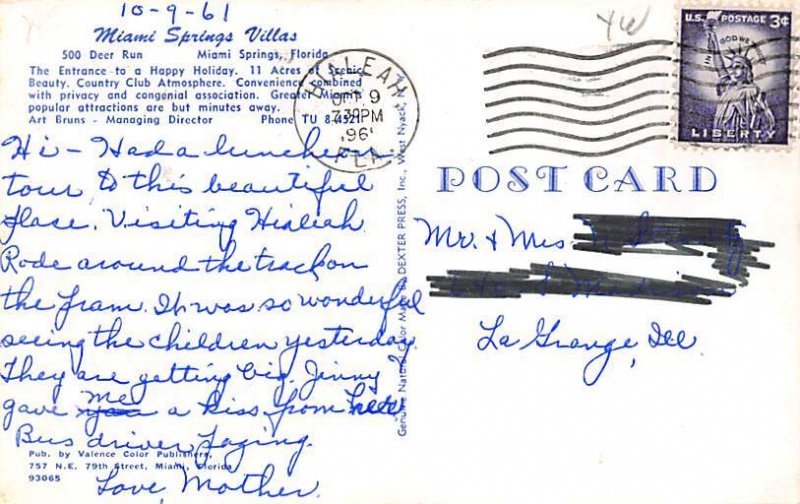 10-9-61
Miami Springs Villas
500 Deer Run Miami Springs, Florida
The Entrance to a Happy Holiday. 11 Acres of Scenic
Beauty. Country Club Atmosphere. Convenience combined
with privacy and congenial association. Greater Miami's
popular attractions are but minutes away.
Art Bruns - Managing Director Phone TU 8-4521
Hi - Had a luncheon
tour to this beautiful
place. Visiting Hialeah
Rode around the track on
the tram. It was so wonderful
seeing the children yesterday.
They are getting big. Jinny
gave me a kiss from
Bus driver
Love, Mother.
Pub. by Valence Color Publishers,
757 N.E. 79th Street, Miami, Florida
93065
Genuine Natural Color Made by DEXTER PRESS, Inc., West Nyack, N.Y.
HIALEAH
OCT 9
7:30 PM
1961
FLA.
U.S. POSTAGE 3¢
IN GOD WE TRUST
LIBERTY
POST CARD
Mr. & Mrs.
La Grange, Ill.